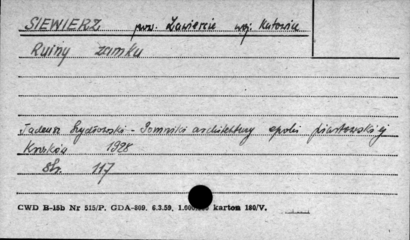 SIEWIERZ pow. Zawiercie woj. Katowice
Ruiny zamku
Tadeusz Szydłowski - Pomniki architektury epoki piastowskiej
Kraków 1928
Str. 117
CWD B-15b Nr 515/P. GDA-809. 6.3.59. karton 180/V.